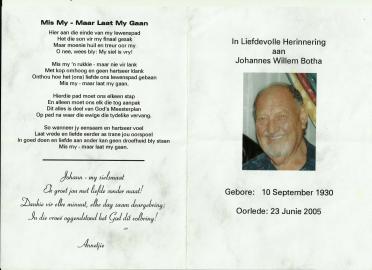 Mis My - Maar Laat My Gaan
Hier aan die einde van my lewenspad
Het die son vir my finaal gesak
Maar moenie huil en treur oor my
O nee, wees bly: My siel is vry!
Mis my 'n rukkie - maar nie vir lank
Met kop omhoog en geen hartseer klank
Onthou hoe het (ons) liefde ons lewenspad gebaan
Mis my - maar laat my gaan.
Hierdie pad moet ons elkeen stap
En alleen moet ons elk die tog aanpak
Dit alles is deel van God's Meesterplan
Op pad na waar die ewige die tydelike vervang.
So wanneer jy eensaam en hartseer voel
Laat vrede en liefde eerder as trane jou oorspoel
In goed doen en liefde aan ander kan geen droefheid bly staan
Mis my - maar laat my gaan.
Johann - my sielsmaat
Ek groet jou met liefde sonder maat!
Dankie vir elke minuut, elke dag saam deurgebring;
In die vroeë oggendstond het God dit volbring!
Annetjie
In Liefdevolle Herinnering
aan
Johannes Willem Botha
Gebore: 10 September 1930
Oorlede: 23 Junie 2005